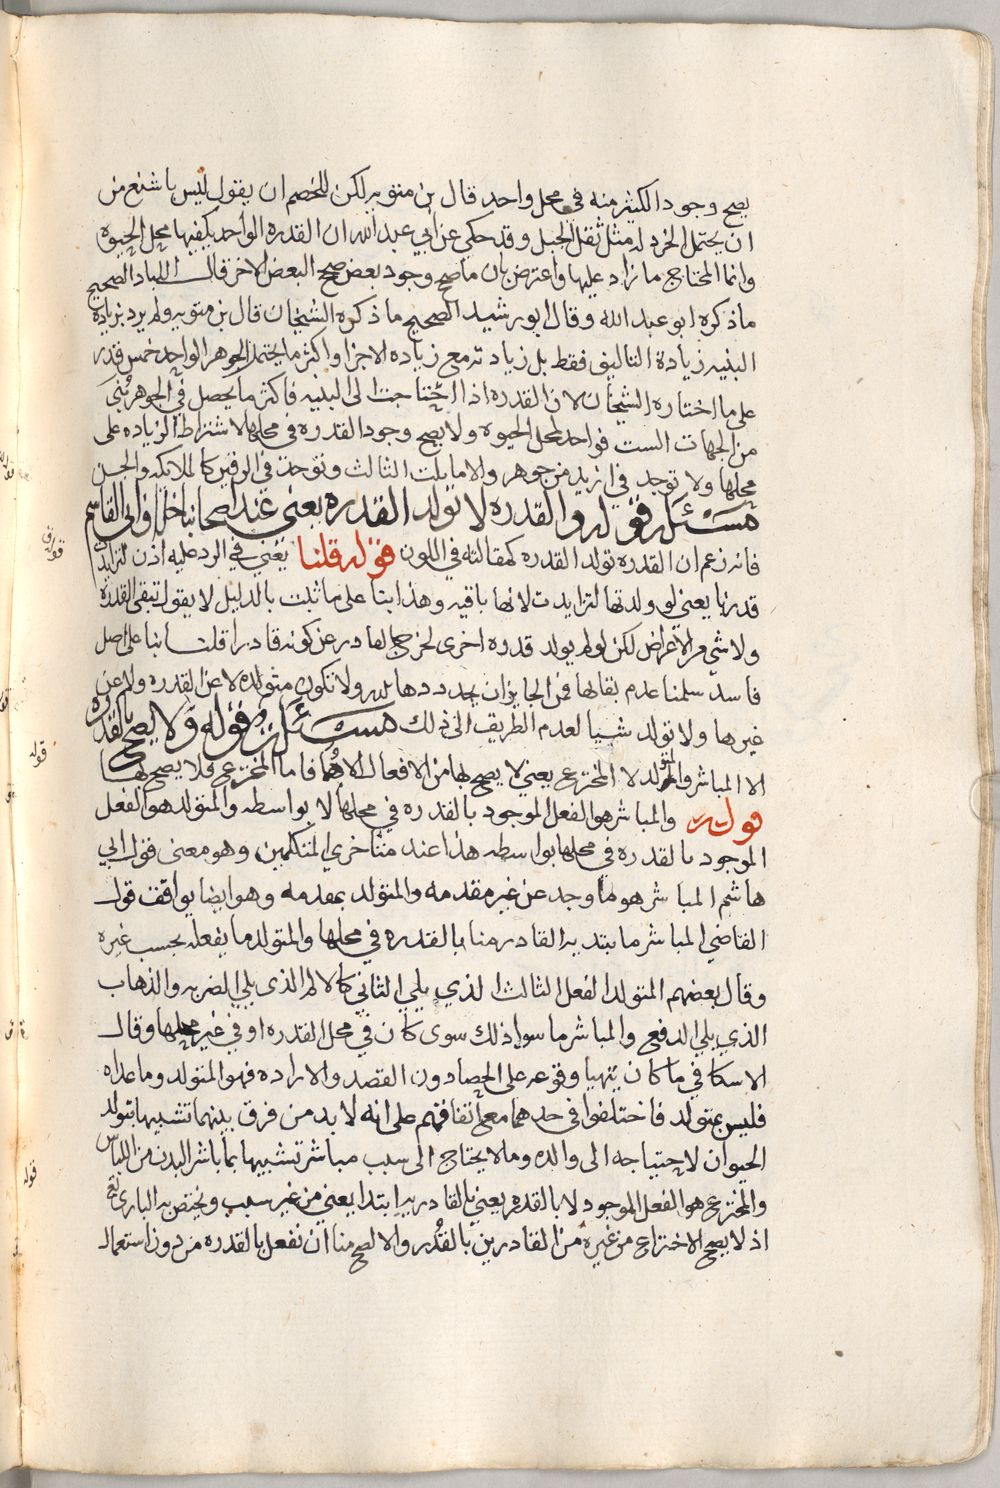 يصح وجود الكثير منه في محل واحد قال بن متويه لكن للخصم ان يقول ليس باشنع من
ان يحتمل الخردله مثل ثقل الجبل وقد حكي عن ابي عبدالله ان القدره الواحد يكفيها محل الحيوه
وانما المحتاج ما زاد عليها واعترض بان ما صح وجود بعض صح البعض الاخر قال الصحيح
ما ذكره ابو عبد الله وقال ابو رشيد الصحيح ما ذكره الشيخان قال بن متويه ولم يرد بزياده
البنيه زيادة التاليف فقط بل زيادته مع زياده الاجزا واكثر ما يحتمل الجوهر الواحد خمس قدر
على ما اختاره الشيخان لان القدره اذا احتاجت الى البنيه فاكثر ما يحصل في الجوهر بُنى
من الجهات الست فواحد لمحل الحيوه ولا يصح وجود القدره في محلها لاشتراط الزياده على
محلها ولا توجد في ازيد من جوهر والا ماثلت الثالث وتوجد في الرقيق كالملائكه والجن
مسئلة قوله والقدره لا تولد القدره يعني عند اصحابنا خلافا لابي القاسم
فانه زعم ان القدره تولد القدره كمقالته في اللون قوله قلنا يعني في الرد عليه اذن لتزايدت
قدرنا يعني لو ولدتها لتزايدت لانها باقيه وهذا بنا على ما ثبت بالدليل لا يقول تبقى القدرة
ولا شي من الاعراض لكن لو لم يولد قدره اخرى لخرج القادر عن كونه قادرا قلت بنا على اصل
فاسد سلمنا عدم بقائها فمن الجايز ان يجددها الله ولا تكون متولده لا عن القدره ولا عن
غيرها ولا تولد شيا لعدم الطريق الى ذلك مسئلة وقوله ولا يصح بالقدره
الا المباشر والمتولد لا المخترع يعني لا يصح لها من الافعال الا هُما فاما المخترع فلا يصح بها
قوله والمباشر هو الفعل الموجود بالقدره في محلها لا بواسطه والمتولد هو الفعل
الموجود بالقدره في محلها بواسطه هذا عند متاخري المتكلمين وهو معنى قول ابي
هاشم المباشر هو ما وجد عن غير مقدمه والمتولد بمقدمه وهو ايضا يوافق قول
القاضي المباشر ما يبتديه القادر منا بالقدره في محلها والمتولد ما يفعله بحسب غيره
وقال بعضهم المتولد الفعل الثالث الذي يلي الثاني كالالم الذي يلي الضربه والذهاب
الذي يلي الدفع والمباشر ما سوا ذلك سوى كان في محل القدره او في غير محلها وقال
الاسكافي ما كان يتهيا وقوعه على الخطا دون القصد والاراده فهو المتولد وما عداه
فليس بمتولد فاختلفوا في حدهما مع اتفاقهم على انه لا بد من فرق بينهما تشبيها بتولد
الحيوان لاحتياجه الى والده وما لا يحتاج الى سبب مباشر تشبيها بما باشر البدن من اللباس
والمخترع هو الفعل الموجود لا بالقدره يعني بالقادر به ابتدا يعني من غير سبب ويختص به الباري تع
اذ لا يصح الاختراع من غيره من القادرين بالقُدَر والا لصح منا ان نفعل بالقدره من دون استعمال
قوله
قوله
قوله